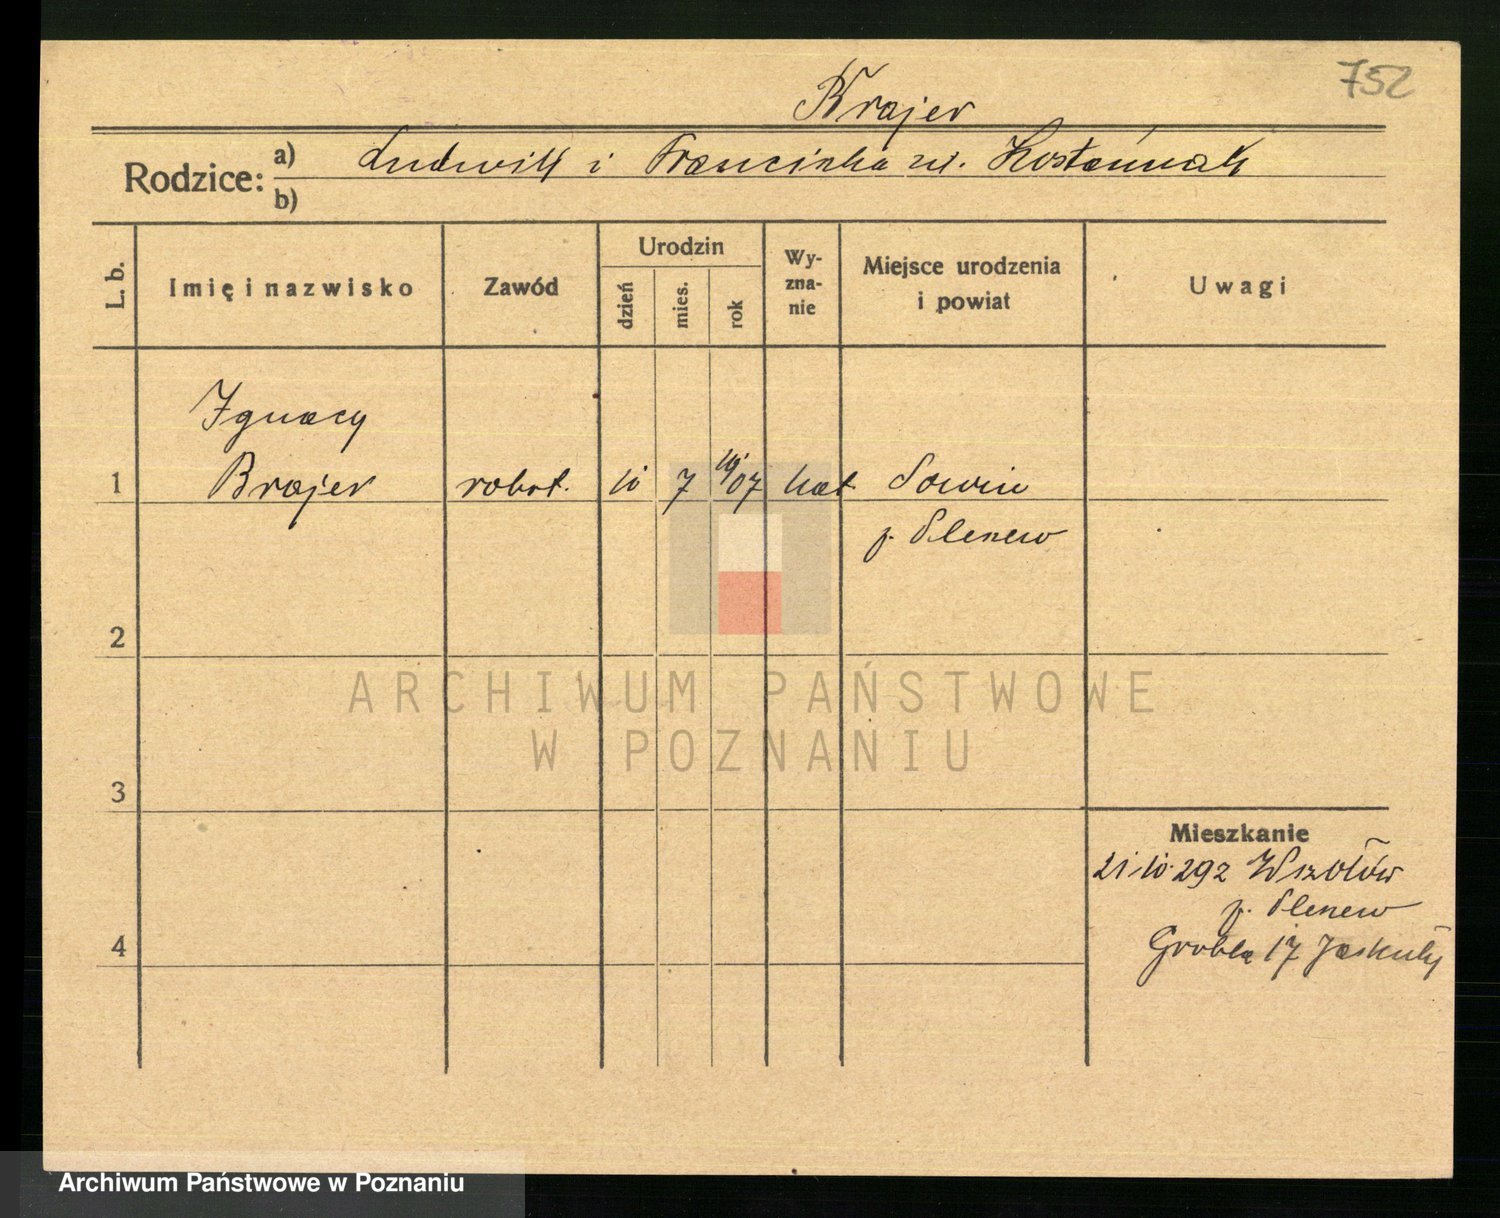 752
Krajer
Rodzice: a) Ludwik i Franciszka zd.
b)
L. b.
Imię i nazwisko
Zawód
Urodzin
dzień
mies.
rok
Wy-
zna-
nie
Miejsce urodzenia
i powiat
Uwagi
Ignacy
1 Brajer robot. 10 7 19/07 kat Sowin
p. Pleszew
2
3
4
Mieszkanie
21.10.29 z
p. Pleszew
Grobla 17 Jaskuły
ARCHIWUM PAŃSTWOWE
W POZNANIU
Archiwum Państwowe w Poznaniu